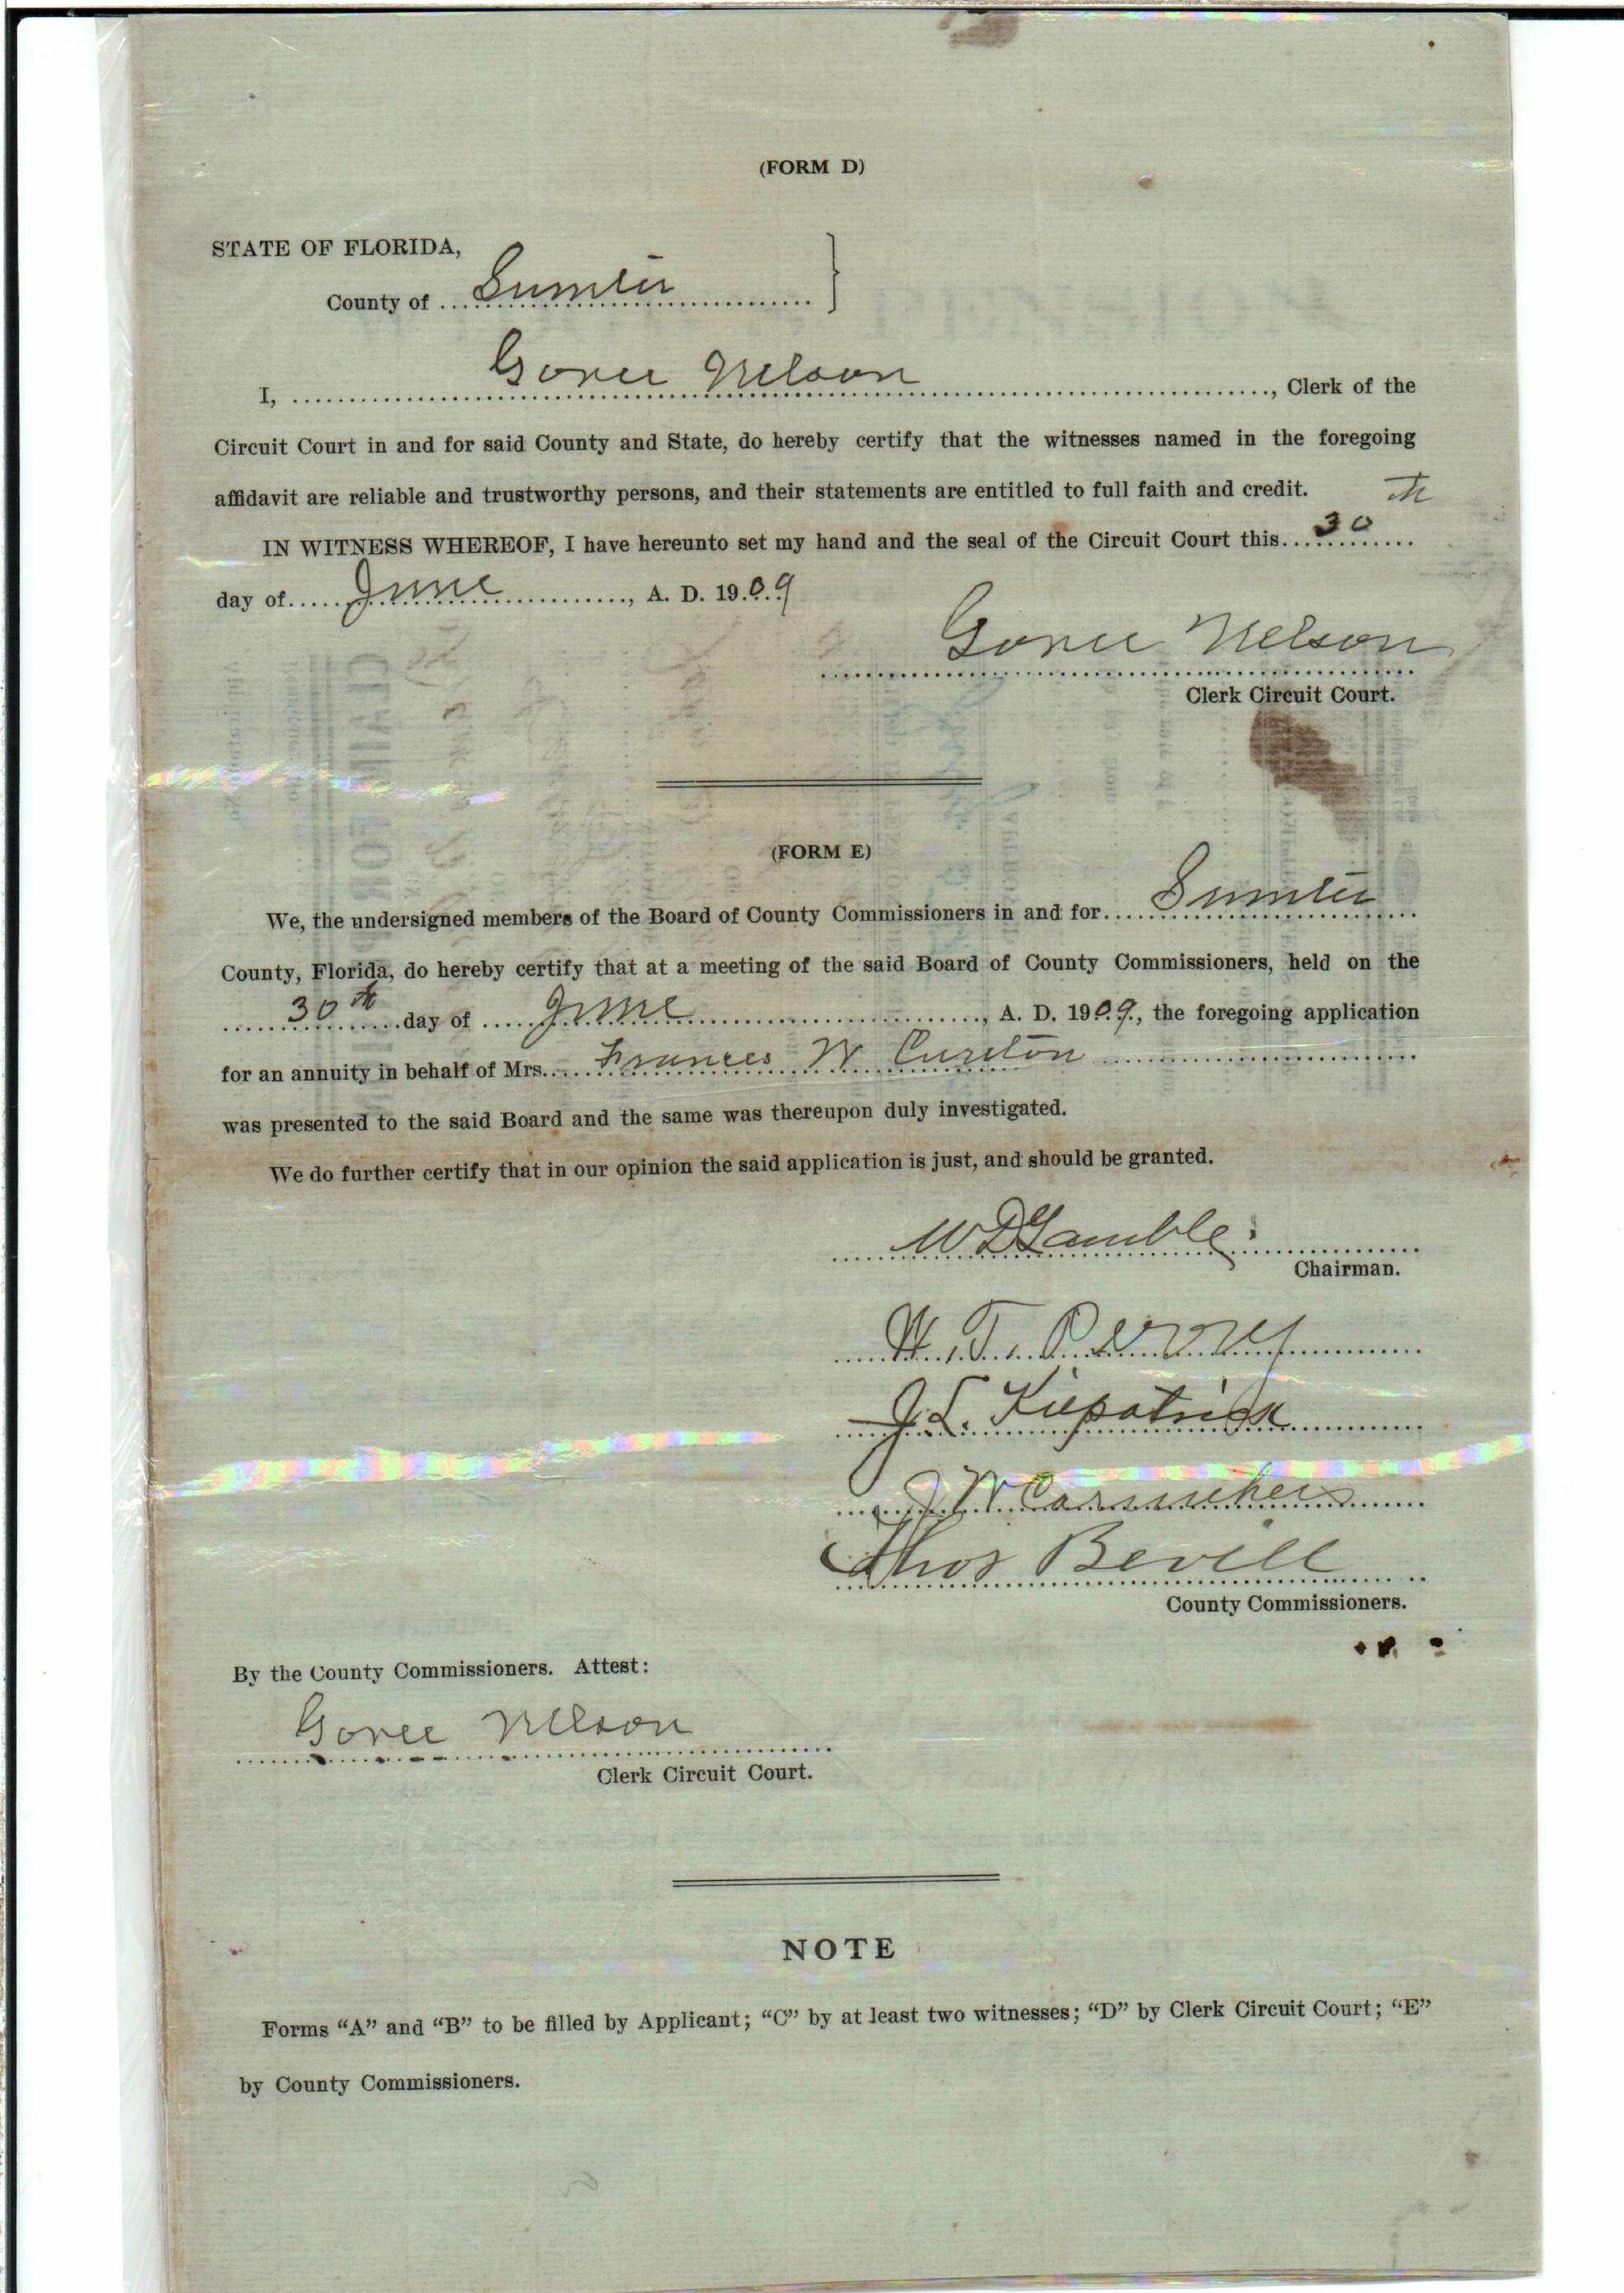 (FORM D)
STATE OF FLORIDA,
County of Sumter
I, Goree Nelson, Clerk of the
Circuit Court in and for said County and State, do hereby certify that the witnesses named in the foregoing
affidavit are reliable and trustworthy persons, and their statements are entitled to full faith and credit.
IN WITNESS WHEREOF, I have hereunto set my hand and the seal of the Circuit Court this 30th
day of June, A. D. 1909
Goree Nelson
Clerk Circuit Court.
(FORM E)
We, the undersigned members of the Board of County Commissioners in and for Sumter
County, Florida, do hereby certify that at a meeting of the said Board of County Commissioners, held on the
30th day of June, A. D. 1909., the foregoing application
for an annuity in behalf of Mrs. Frances W Cureton
was presented to the said Board and the same was thereupon duly investigated.
We do further certify that in our opinion the said application is just, and should be granted.
W D Gamble
Chairman.
W. T. Perry
J L. Kilpatrick
J W
Thos Bevill
County Commissioners.
By the County Commissioners. Attest:
Goree Nelson
Clerk Circuit Court.
NOTE
Forms “A” and “B” to be filled by Applicant; “C” by at least two witnesses; “D” by Clerk Circuit Court; “E”
by County Commissioners.